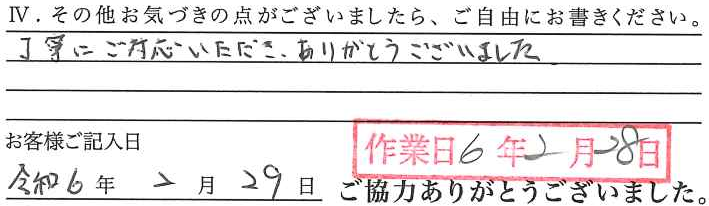 Ⅳ．その他お気づきの点がございましたら、ご自由にお書きください。
丁寧にご対応いただき、ありがとうございました
お客様ご記入日
作業日6年2月28日
令和6年2月29日
ご協力ありがとうございました。